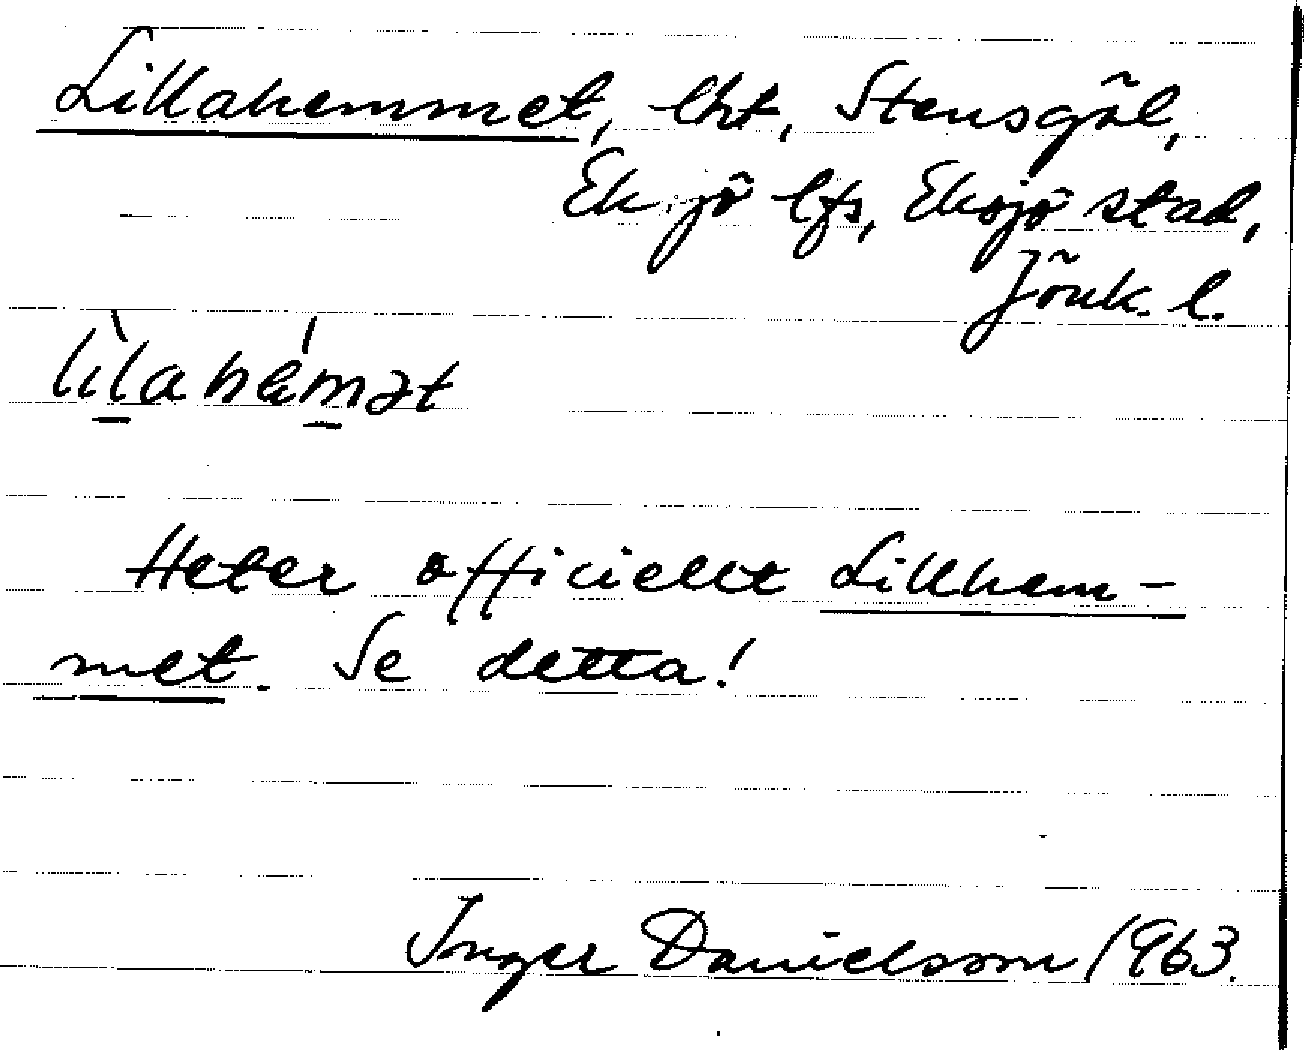 Lillahemmet, lht, Stensgöl,
Eksjö lfs, Eksjö stad,
Jönk. l.
lìlahémət
Heter officiellt Lillhem-
met. Se detta!
Inger Danielsson 1963.